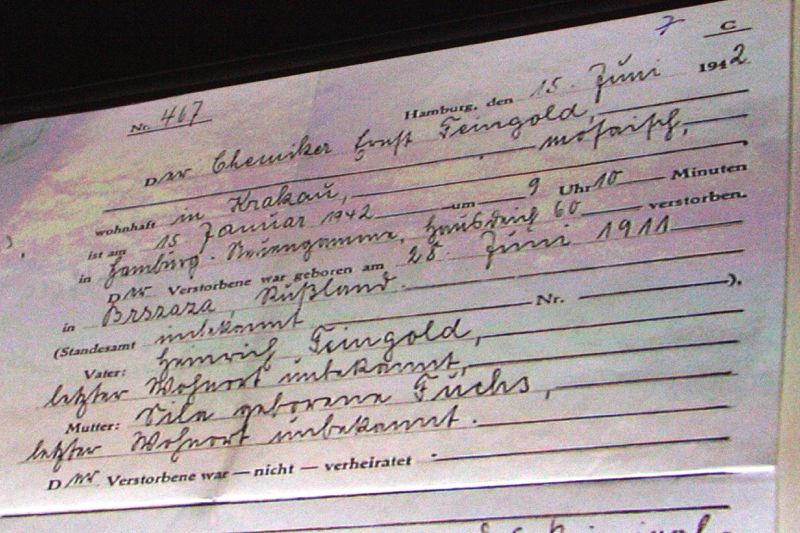 C
Nr. 467
Hamburg, den 15. Juni 1942
Der Chemiker Ernst Feingold,
mosaisch,
wohnhaft in Krakau,
ist am 15. Januar 1942 um 9 Uhr 10 Minuten
in Hamburg-Neuengamme, Hausdeich 60 verstorben.
Der Verstorbene war geboren am 28. Juni 1911
in Brszaza, Rußland.
(Standesamt unbekannt Nr. ).
Vater: Heinrich Feingold,
letzter Wohnort unbekannt,
Mutter: geborene Fuchs,
letzter Wohnort unbekannt.
Der Verstorbene war — nicht — verheiratet